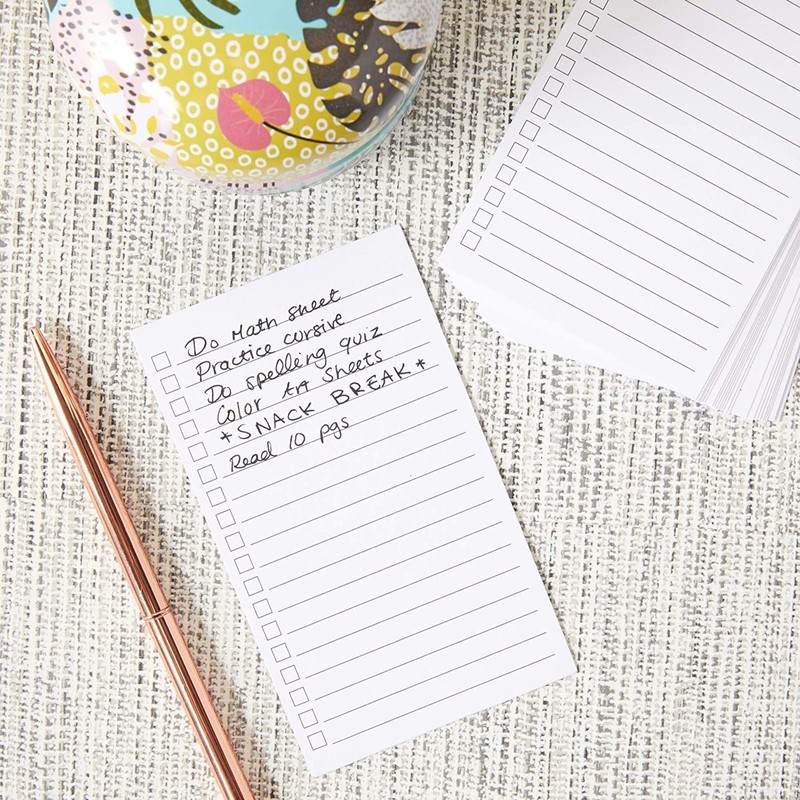 Do Math Sheet
Practice cursive
Do spelling quiz
Color Art Sheets
*SNACK BREAK*
Read 10 pgs